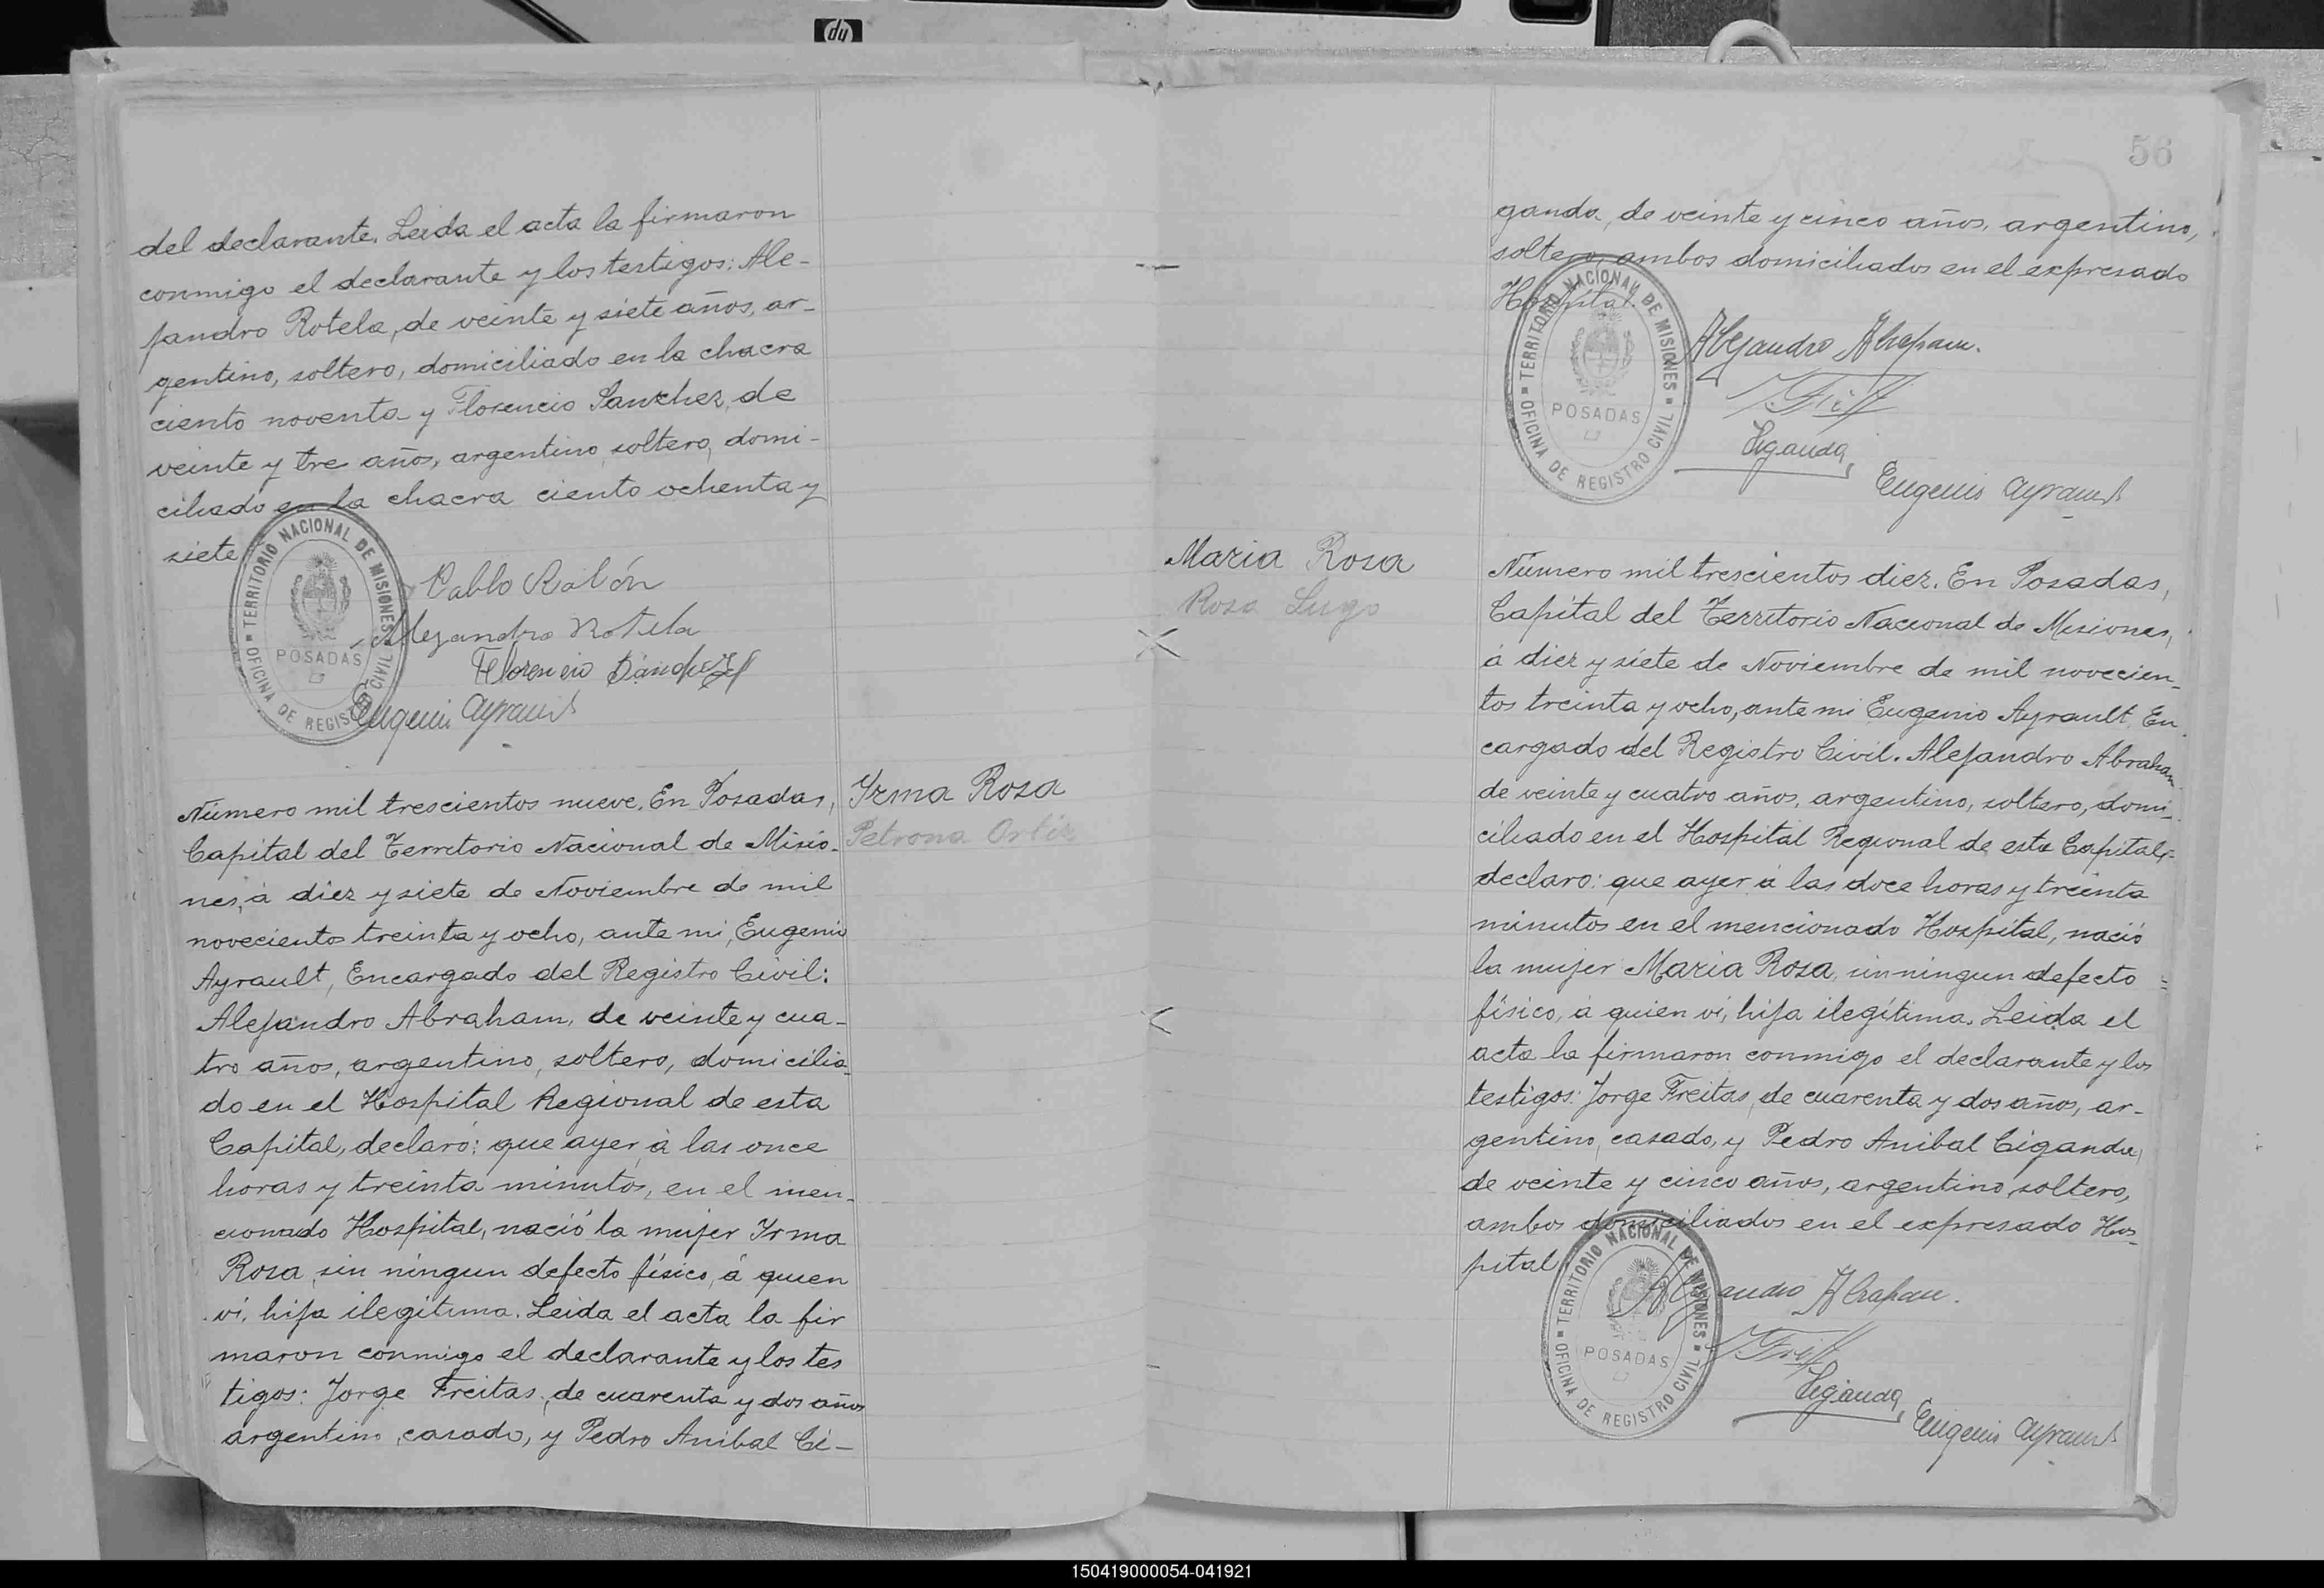 del declarante. Leida el acta la firmaron
conmigo el declarante y los testigos: Ale-
jandro Rotela, de veinte y siete años, ar-
gentino, soltero, domiciliado en la chacra
ciento noventa y Florencio Sanchez, de
veinte y tre años, argentino, soltero, domi-
ciliado en la chacra ciento ochenta y
siete
TERRITORIO NACIONAL DE MISIONES
POSADAS
OFICINA DE REGISTRO CIVIL
Pablo
Alejandro Rotela
Florencio Sánchez
Eugenio Ayrault
Número mil trescientos nueve. En Posadas,
Capital del Territorio Nacional de Misio-
nes, á diez y siete de Noviembre de mil
novecientos treinta y ocho, ante mi, Eugenio
Ayrault, Encargado del Registro Civil:
Alejandro Abraham, de veinte y cua-
tro años, argentino, soltero, domicilia-
do en el Hospital Regional de esta
Capital, declaró: que ayer á las once
horas y treinta minutos, en el men-
cionado Hospital, nació la mujer Yrma
Rosa, sin ningun defecto físico, á quien
ví, hija ilegítima. Leida el acta la fir
maron conmigo el declarante y los tes
tigos: Jorge Freitas, de cuarenta y dos años
argentino, casado, y Pedro Anibal Ci-
Yrma Rosa
Petrona Ortiz
56
ganda, de veinte y cinco años, argentino,
soltero, ambos domiciliados en el expresado
Hospital.
TERRITORIO NACIONAL DE MISIONES
POSADAS
OFICINA DE REGISTRO CIVIL
Alejandro Abraham.
Ciganda
Eugenio Ayrault
Maria Rosa
Rosa Lugo
Número mil trescientos diez. En Posadas,
Capital del Territorio Nacional de Misiones,
á diez y siete de Noviembre de mil novecien-
tos treinta y ocho, ante mi Eugenio Ayrault, En
cargado del Registro Civil. Alejandro Abraham
de veinte y cuatro años, argentino, soltero, domi-
ciliado en el Hospital Regional de esta Capital,
declaro: que ayer á las doce horas y treinta
minutos en el mencionado Hospital, nació
la mujer Maria Rosa, sin ningun defecto
físico, á quien ví, hija ilegítima. Leida el
acta la firmaron conmigo el declarante y los
testigos: Jorge Freitas, de cuarenta y dos años, ar-
gentino, casado, y Pedro Anibal Ciganda,
de veinte y cinco años, argentino, soltero,
ambos domiciliados en el expresado Hos-
pital
TERRITORIO NACIONAL DE MISIONES
POSADAS
OFICINA DE REGISTRO CIVIL
Alejandro Abraham.
Ciganda
Eugenio Ayrault
hp
150419000054-041921